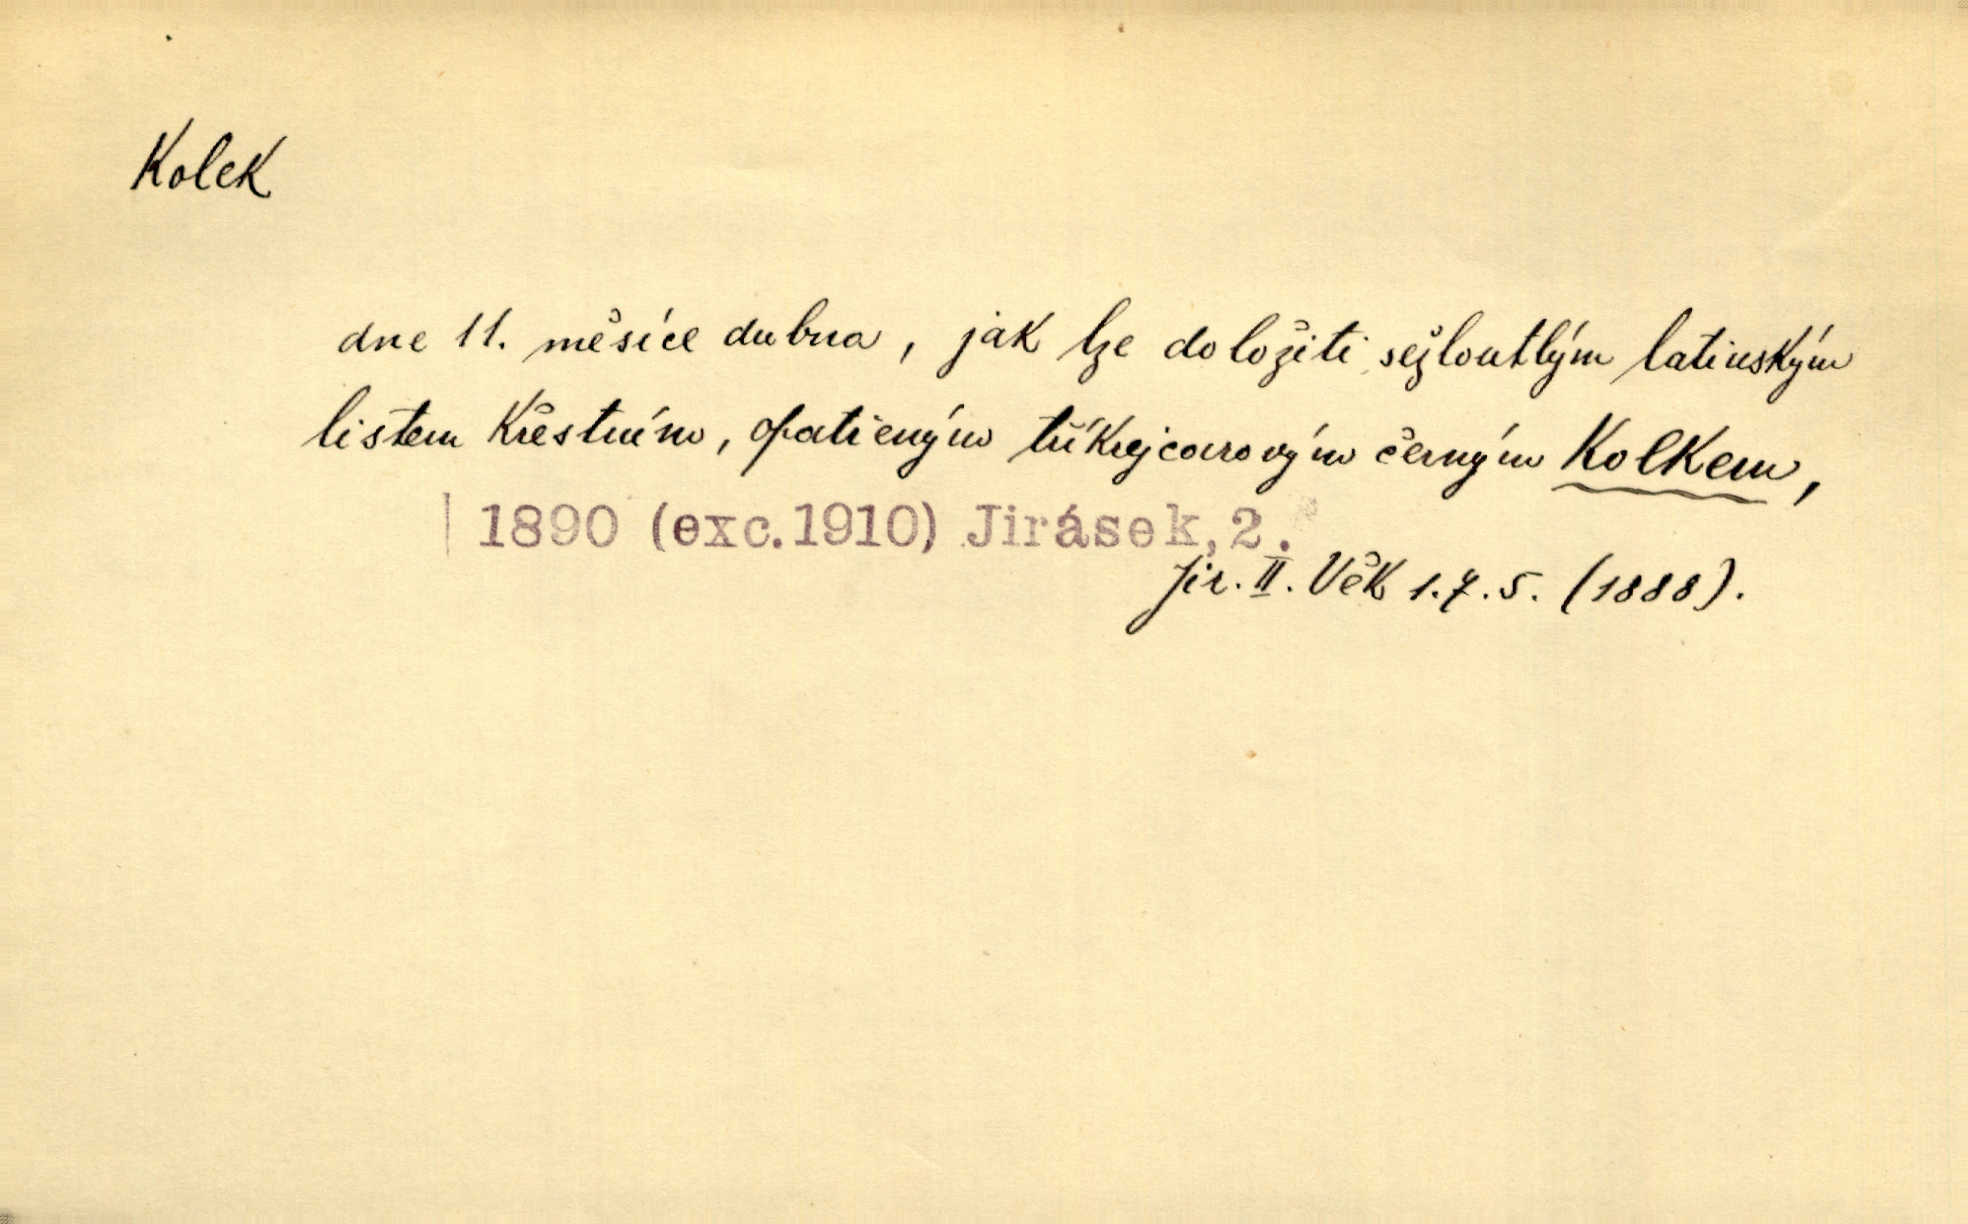 Kolek
dne 11. měsíce dubna, jak lze doložiti sežloutlým latinským
listem křestním, opatřeným tříkrejcarovým černým Kolkem,
1890 (exc.1910) Jirásek,2.
Jir. II. Věk 1.7.5. (1888).